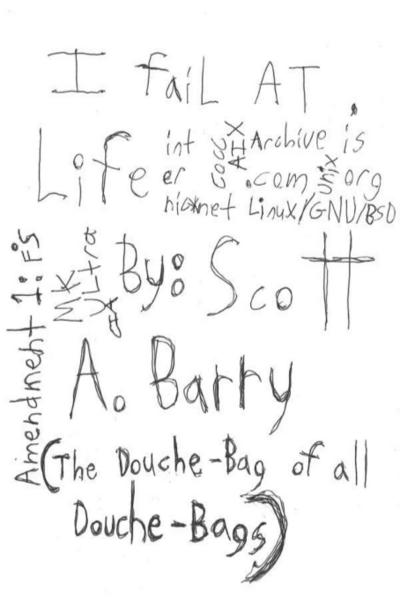 I fail AT
Life
int
er
nic*net
Cocc
AIX
Archive is
.com
unix
.org
Linux/GNU/BSD
Amendment 1: FS
MK
ULtra
By: Scott
A. Barry
(The Douche-Bag of all
Douche-Bags)